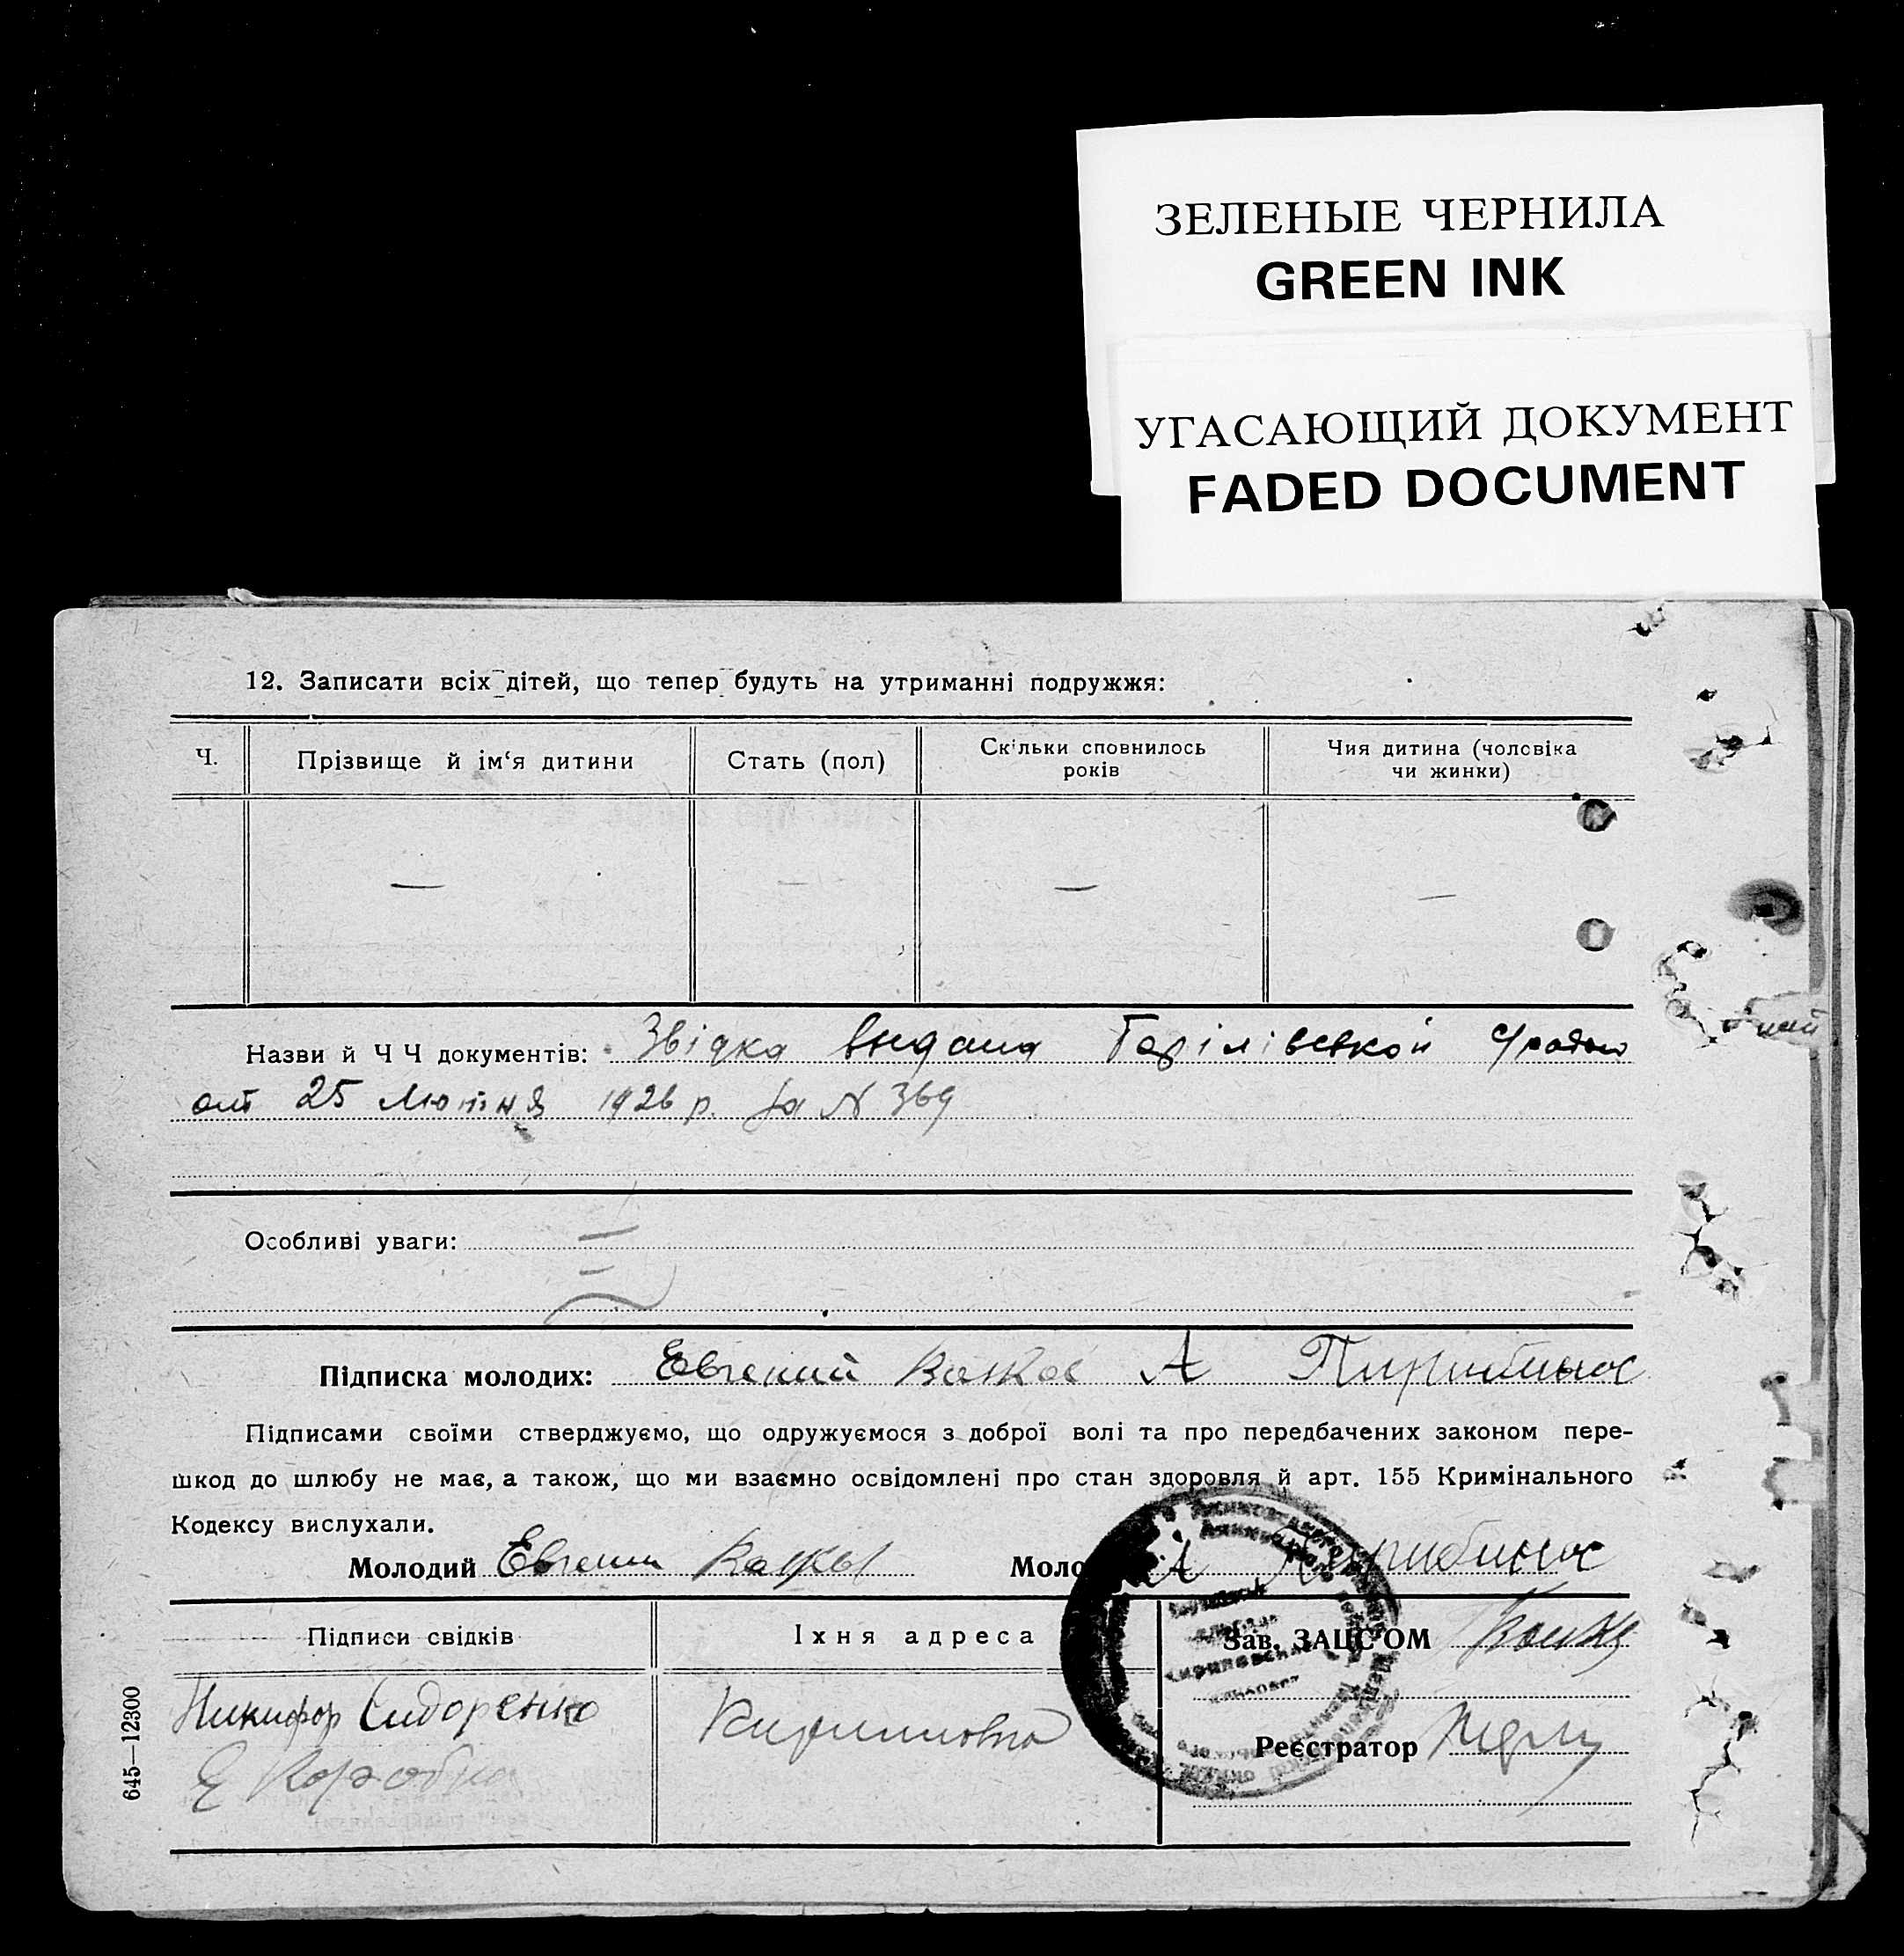 ЗЕЛЕНЫЕ ЧЕРНИЛА
GREEN INK
УГАСАЮЩИЙ ДОКУМЕНТ
FADED DOCUMENT
12. Записати всіх дітей, що тепер будуть на утриманні подружжя:
Ч. Прізвище й ім‘я дитини Стать (пол) Скільки сповнилось років Чия дитина (чоловіка чи жинки)
— — — —
Назви й Ч Ч документів: Звідка выдана
от 25 Лютня 1926 р. за N 369
Особливі уваги:
Підписка молодих: Евгений А
Підписами своїми стверджуємо, що одружуємося з доброї волі та про передбачених законом пере-
шкод до шлюбу не має, а також, що ми взаємно освідомлені про стан здоровля й арт. 155 Кримінального
Кодексу вислухали.
Молодий Евгений Моло А
Підписи свідків Їхня адреса Зав. ЗАЦС'ОМ
Никифор Сидоренко
Реєстратор
Е Коробка
645—12300